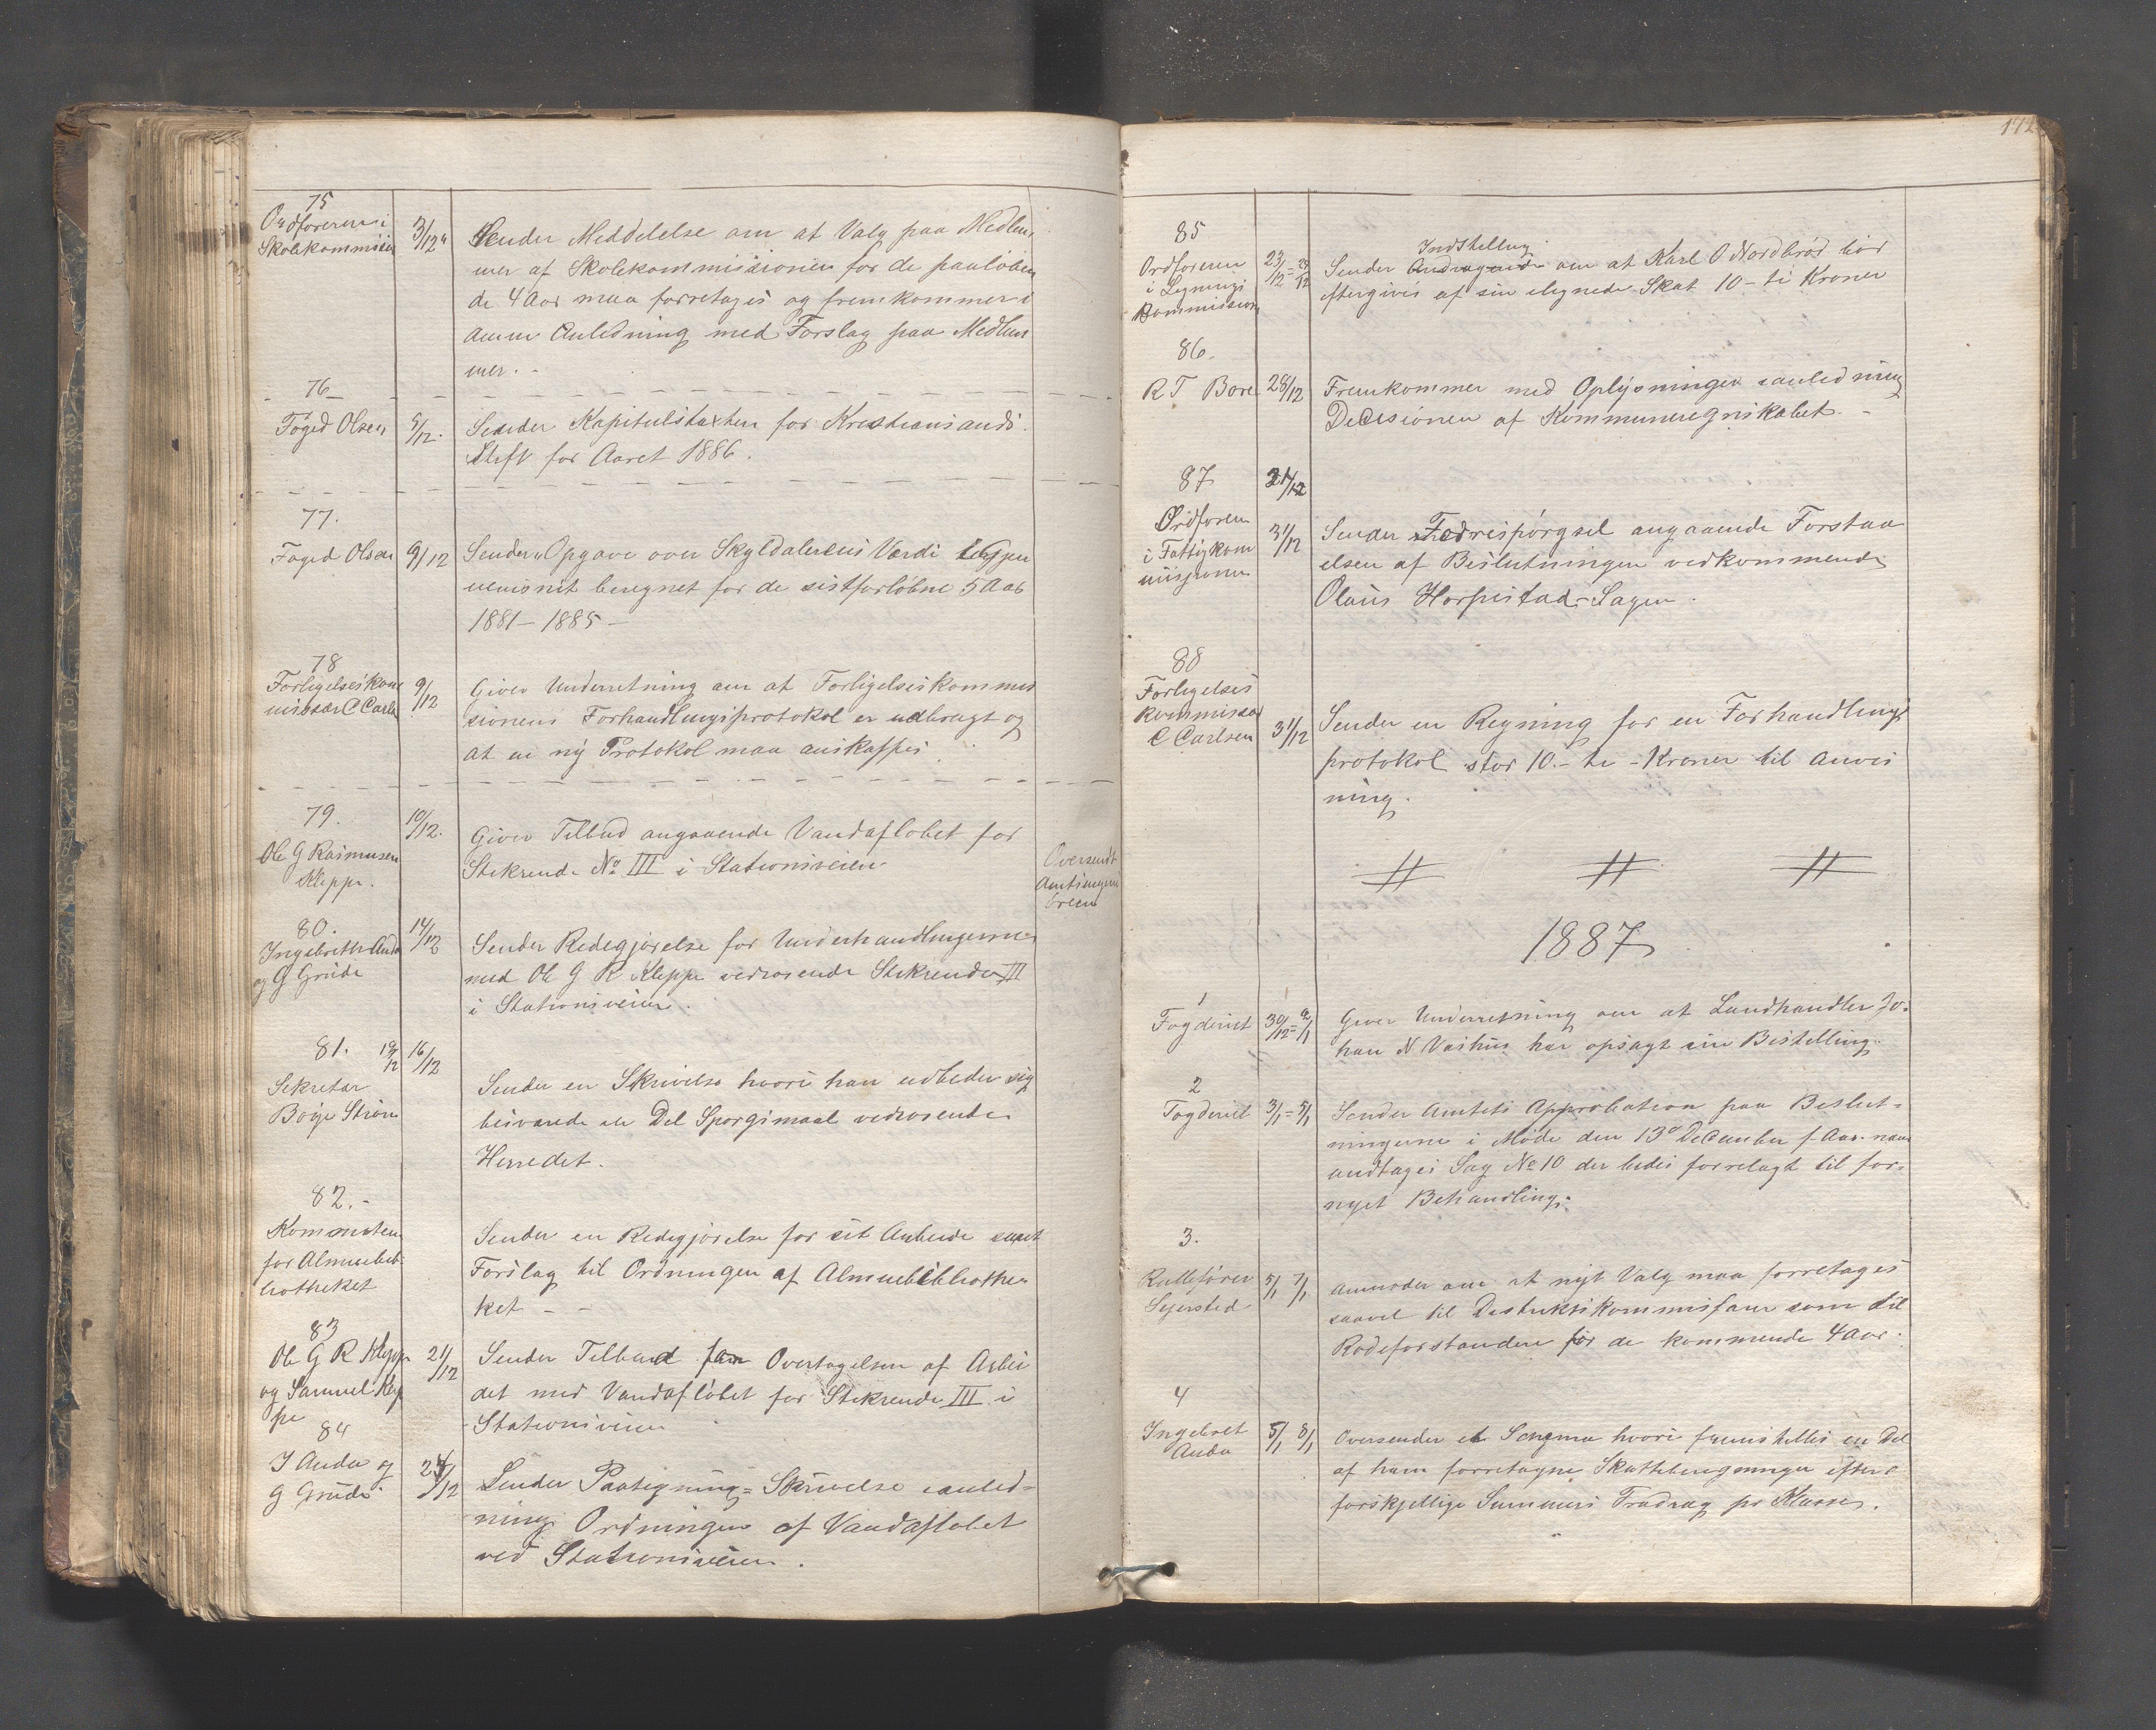 75
Ordføreren i
Skolekommission
3/12
Sender Meddelelse om at Valg paa Medlem
mer af Skolekommissionen for de paaløben
de 4 Aar maa forretages og fremkommer i
Anledning med Forslag paa Medlem
mer. -
76
Foged Olsen
5/12.
Sender Kapitelstaxten for Kristiansands
Stift for Aaret 1886.
77.
Foged Olsen
9/12
Sender Opgave over Skyldalerens Værdi
beregnet for de sistforløbne 5 Aar
1881 - 1885 -
78
Forligelseskom
missær C Carls
9/12
Giver Underretning om at Forligelseskommis
sionens Forhandlingsprotokol er udbrugt og
at en ny Protokol maa anskaffes
79.
Ole G Rasmusen
Kleppe.
10/12.
Giver Tilbud angaaende Vandafløbet for
Stikrende No III i Stationsveien
Oversendt
Amtsingeni
80.
Ingebreth Auda
og G Grude
14/12
Sender Redegjørelse for Underhandlingerne
med Ole G R Kleppe vedrørende Stikrenden III
i Stationsveien.
81.
19/12
16/12
Sekretær
Boye Strøm
Sender en Skrivelse hvori han udbeder sig
besvarede en Del Spørgsmaal vedrørende
Herredet.
82. -
Kommiteen
for Almuebib
liotheket
Sender en Redegjørelse for sit Arbeide samt
Forslag til Ordningen af Almuebibliothe
ket - -
83
Ole G R Kleppe
og Samuel Klep
pe
21/12
Sender Tilbud om Overtagelsen af Arbei
det med Vandafløbet for Stikrende III i
Stationsveien
84
I Auda og
G Grude
24/12
Sender Paategning = Skrivelse ianled-
ning Ordningen af Vandafløbet
ved Stationsveien.
172
85
Ordføreren
i Lignings
Kommission
23/12 = 23/12
Indstilling
Sender Andragende om at Karl O Nordbrød bør
eftergives af sin ilignede Skat 10 - ti Kroner
86.
R T Bore
28/12
Fremkommer med Oplysninger ianledning
Decisionen af Kommuneregnskabet. -
87
31/12
Ordføren
i Fattigkom
missionen
31/12
Sender Forespørgsel angaaende Forstaa
elsen af Beslutningen vedkommende
Olaus Horpestad-Sagen.
88
Forligelses
kommissær
C Carlsen
31/12
Sender en Regning for en Forhandlings
protokol stor 10. - ti - Kroner til Anvis
ning.
1887
1
Fogderiet
30/12 = 2/1
Giver Underretning om at Landhandler Jo-
han N Vashus har opsagt sin Bestilling.
2
Fogderiet
3/1 = 5/1
Sender Amtets Approbation paa Beslut-
ningerne i Møde den 13de December f. Aar. naar
undtages Sag No 10 der bedes forrelagt til for-
nyet Behandling.
3.
Rullefører
Sejersted
5/1 7/1
Anmoder om at nyt Valg maa forretages
saavel til Distriktskommissær som til
Rodeforstandere for de kommende 4 Aar.
4
Ingebret
Auda
5/1 8/1
Oversender et Schema hvori fremstilles en Del
af ham forretagne Skatteberegninger efter
forskjellige Summers Fradrag pr Klasse.